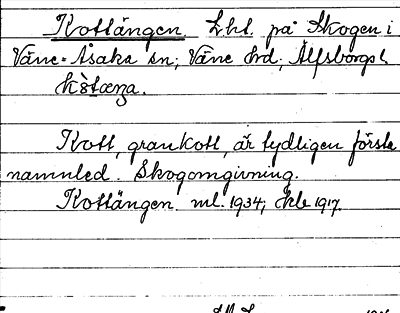 Kottängen. Lht. på Skogen i
Väne-Åsaka sn; Väne hrd, Älfsborgs l.
Kott, grankott, är tydligen första
namnled. Skogomgivning.
Kottängen ml. 1934; Ekb 1917.